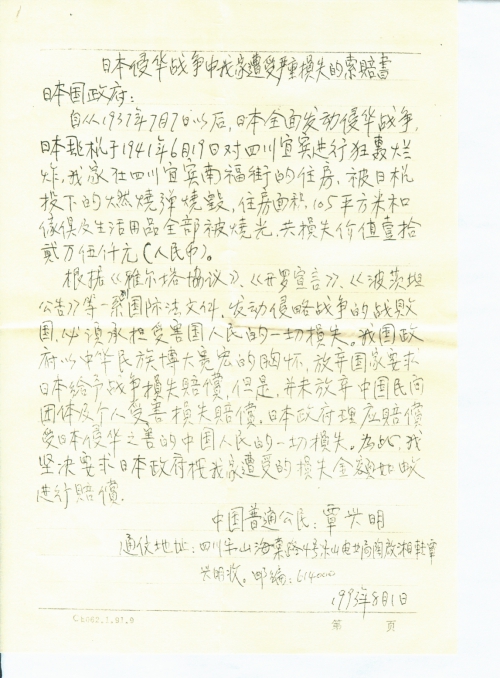 日本侵华战争中我家遭受严重损失的索赔书
日本国政府：
自从1937年7月7日以后，日本全面发动侵华战争，
日本飞机于1941年6月19日对四川宜宾进行狂轰烂
炸，我家在四川宜宾南福街的住房，被日机
投下的燃烧弹烧毁，住房面积105平方米和
傢俱及生活用品全部被烧光，共损失价值壹拾
贰万伍仟元（人民币）。
根据《雅尔塔协议》、《开罗宣言》、《波茨坦
公告》等一系国际法文件，发动侵略战争的战败
国，必须承担受害国人民的一切损失。我国政
府以中华民族博大宽宏的胸怀，放弃国家要求
日本给予战争损失赔偿，但是，并未放弃中国民间
团体及个人受害损失赔偿，日本政府理应赔偿
受日本侵华之害的中国人民的一切损失。为此，我
坚决要求日本政府按我家遭受的损失金额如数
进行赔偿。
中国普通公民：覃兴明
通信地址：四川乐山海棠路4号乐山电业局
兴明收。邮编：614000
1993年8月1日
第 页